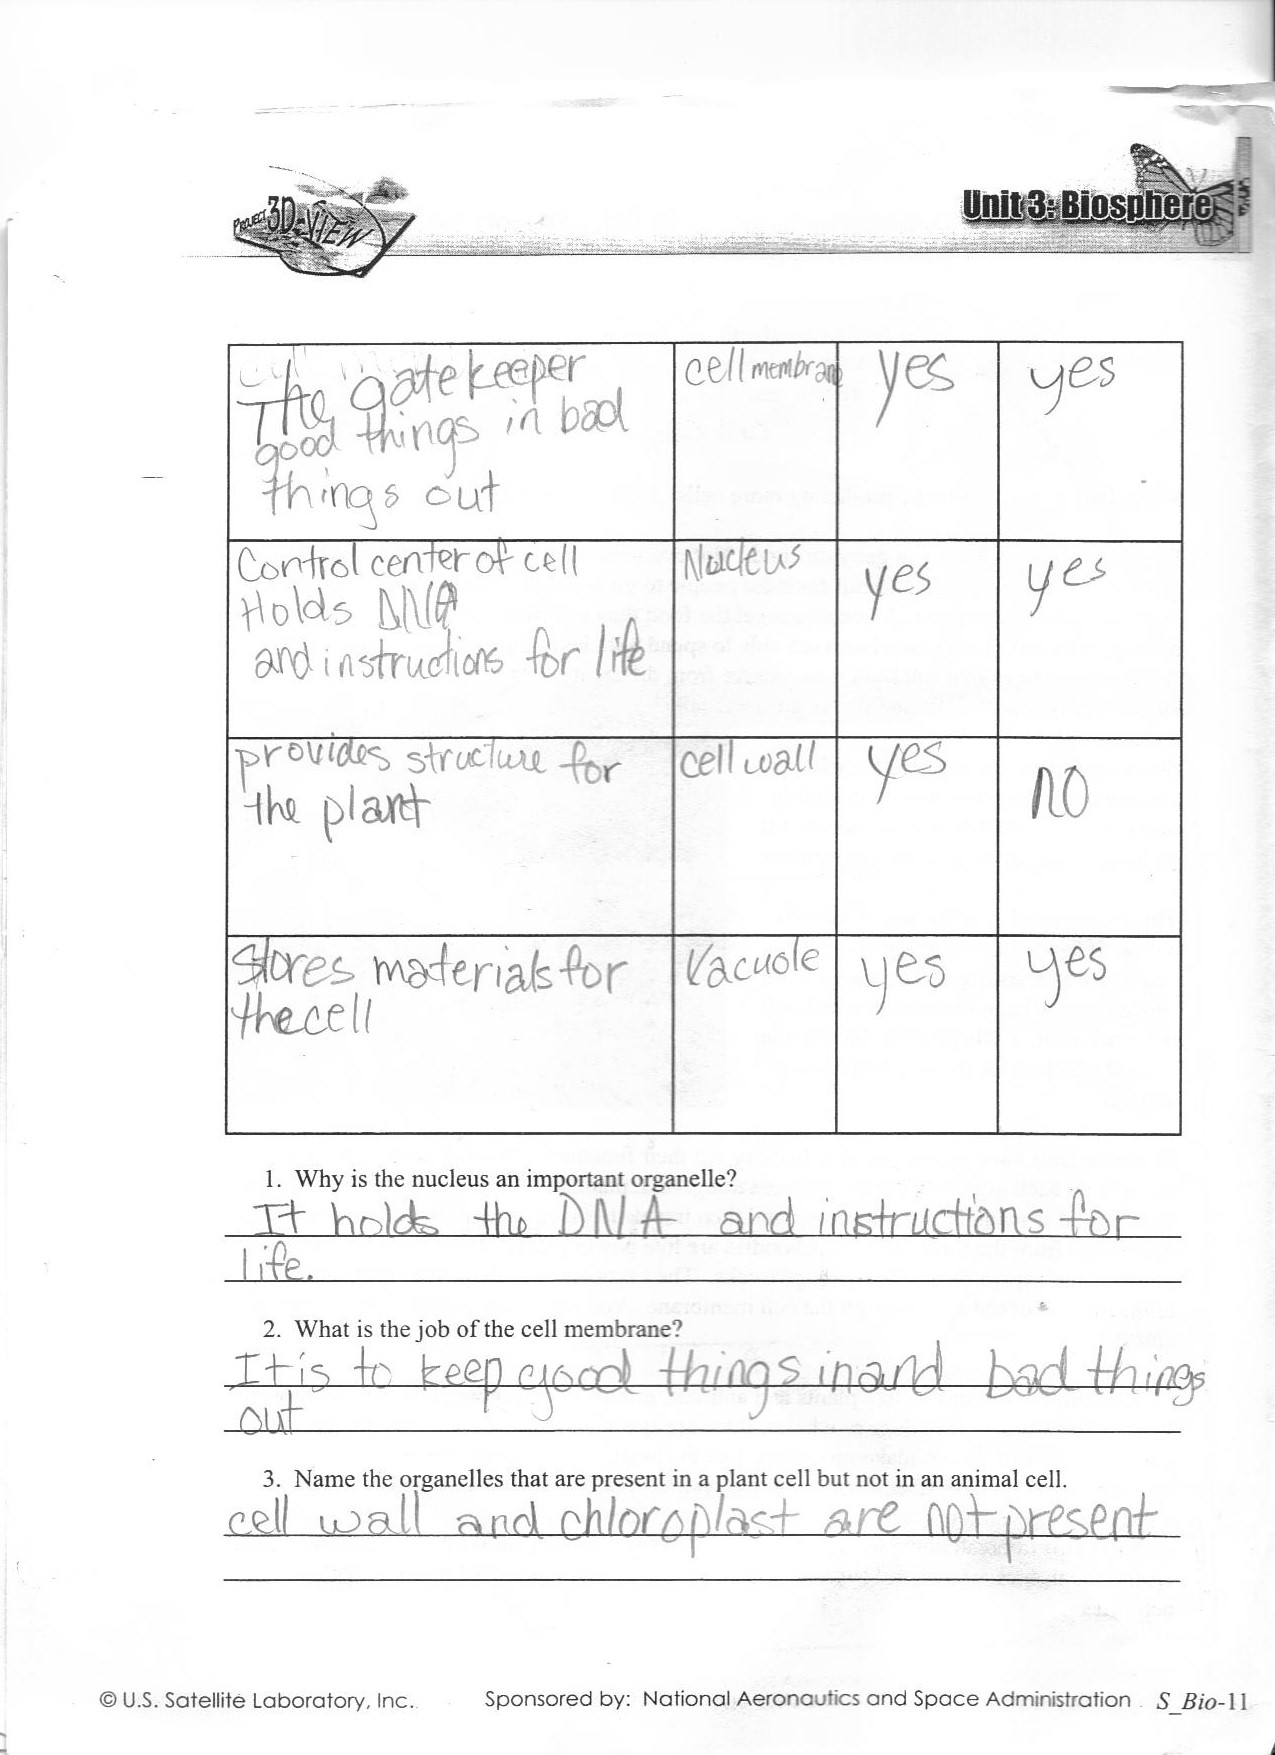 PROJECT 3D-VIEW
Unit 3: Biosphere
The gatekeeper
good things in bad
things out
cell membrane
yes
yes
Control center of cell
Holds DNA
and instructions for life
Nucleus
yes
yes
provides structure for
the plant
cell wall
yes
no
Stores materials for
the cell
Vacuole
yes
yes
1. Why is the nucleus an important organelle?
It holds the DNA and instructions for
life.
2. What is the job of the cell membrane?
It is to keep good things in and bad things
out
3. Name the organelles that are present in a plant cell but not in an animal cell.
cell wall and chloroplast are not present
© U.S. Satellite Laboratory, Inc. Sponsored by: National Aeronautics and Space Administration S_Bio-11